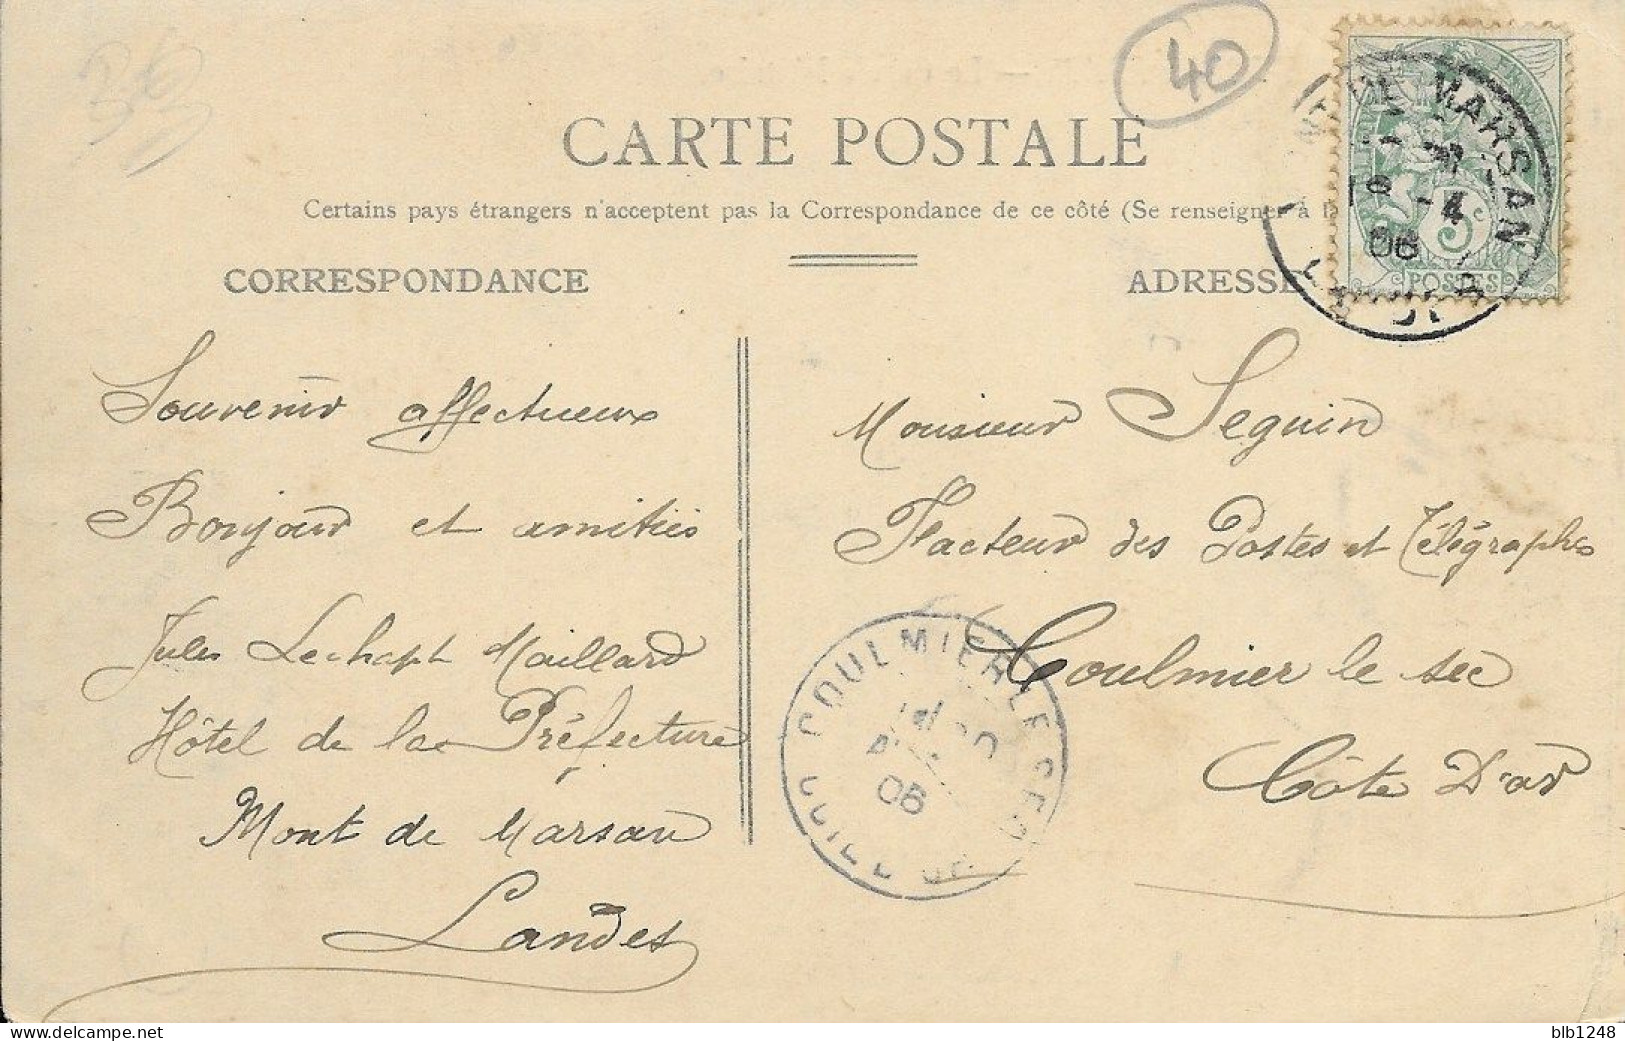 40
CARTE POSTALE
Certains pays étrangers n'acceptent pas la Correspondance de ce côté (Se renseigner à la
CORRESPONDANCE
ADRESSE
DE MARSAN
-4
06
5c
POSTES
Souvenir affectueux
Bonjour et amitiés
Jules Lechapt Maillard
Hôtel de la Préfecture
Mont de Marsan
Landes
Monsieur Seguin
Facteur des Postes et Télégraphes
Coulmier le sec
Côte D'or
COULMIER LE SEC
06
COTE D'OR
blb1248